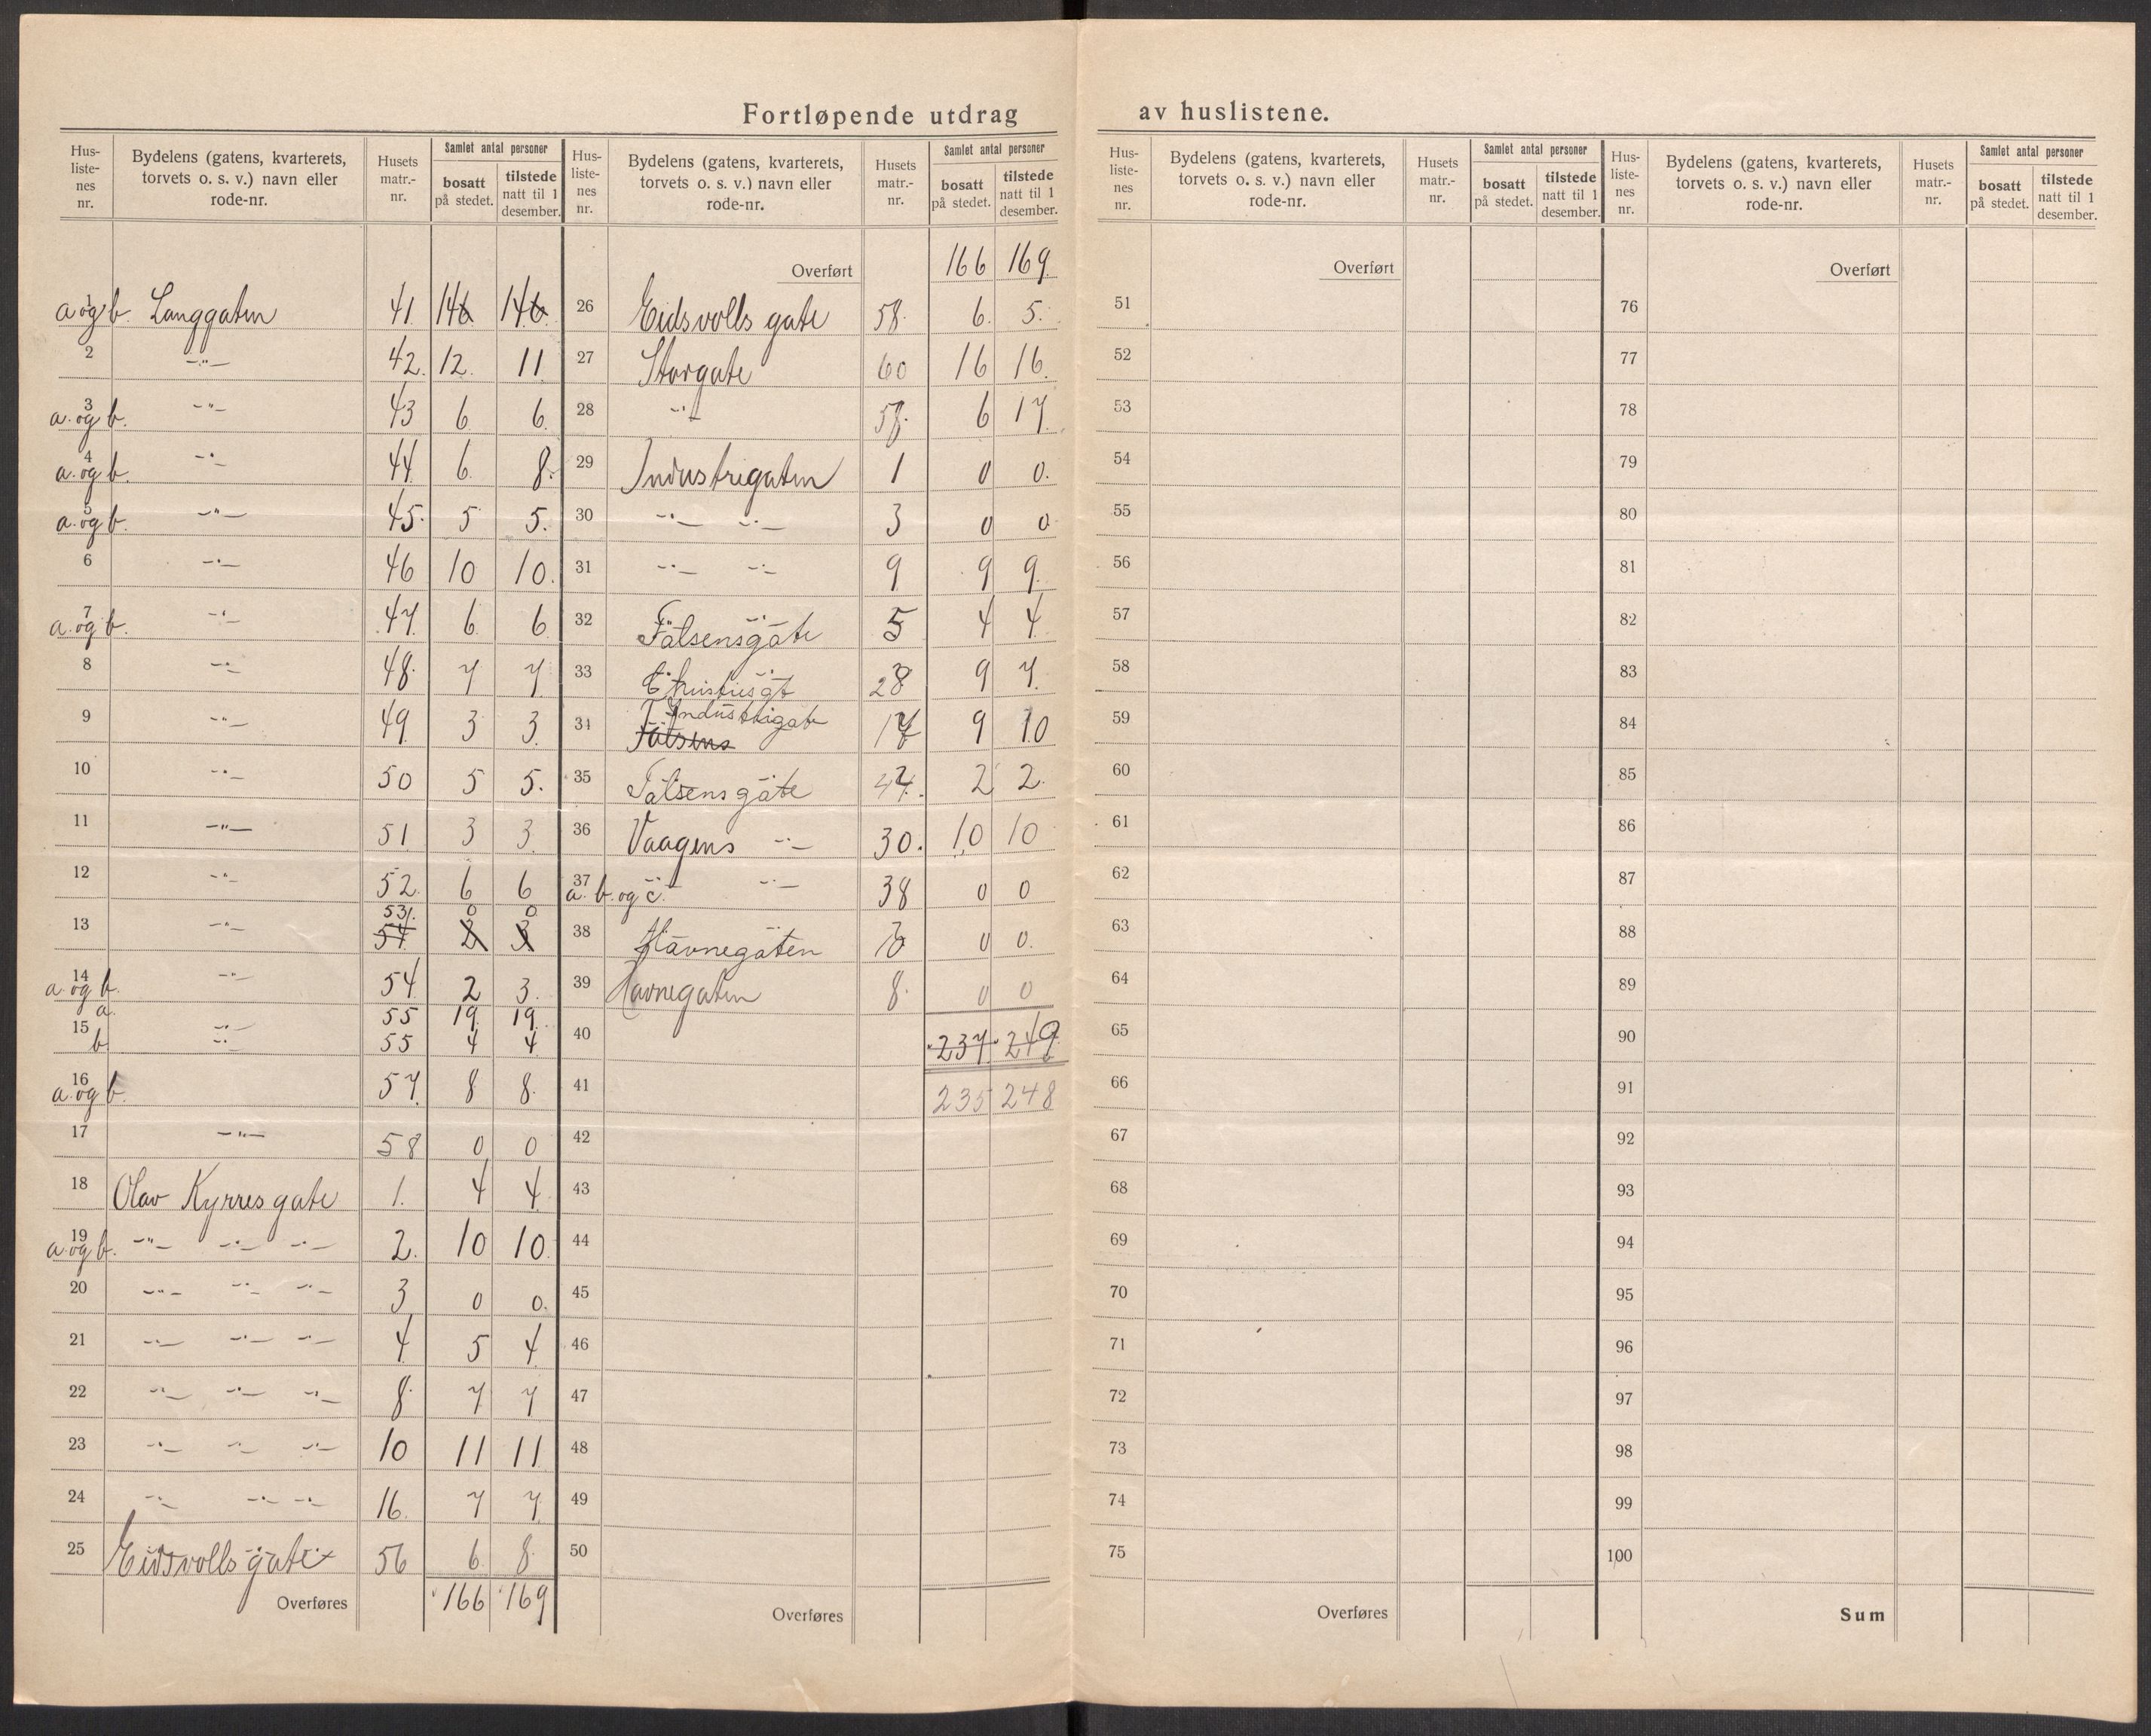 Fortløpende utdrag av huslistene.
Hus-liste-nes nr. | Bydelens (gatens, kvarterets, torvets o. s. v.) navn eller rode-nr. | Husets matr.-nr. | Samlet antal personer | bosatt på stedet. | tilstede natt til 1 desember.
1 a og b. Langgaten 41 14
2 -"- 42. 12. 11
3 a. og b. -"- 43 6 6.
4 a. og b. -"- 44 6. 8.
5 a. og b. -"- 45. 5 5.
6 -"- 46 10 10.
7 a. og b. -"- 47. 6. 6
8 -"- 48. 7 7
9 -"- 49. 3 3.
10 -"- 50 5 5.
11 -"- 51. 3 3.
12 -"- 52. 6 6
13 -"- 53. 0 0
54. 2 3
14 a. og b. -"- 54 2 3.
15 a. -"- 55 19. 19.
b -"- 55 4 4
16 a. og b. 57. 8 8.
17 -"- 58 0 0
18 Olav Kyrres gate 1. 4 4
19 a. og b. -"- -"- -"- 2. 10 10.
20 -"- -"- -"- 3 0 0.
21 -"- -"- -"- 4 5 4
22 -"- -"- -"- 8. 7 7
23 -"- -"- -"- 10 11 11
24 -"- -"- -"- 16. 7 7.
25 Eidsvolls gate 56 6. 8.
Overføres 166 169
Hus-liste-nes nr. | Bydelens (gatens, kvarterets, torvets o. s. v.) navn eller rode-nr. | Husets matr.-nr. | Samlet antal personer | bosatt på stedet. | tilstede natt til 1 desember.
Overført 166 169
26 Eidsvolls gate 58. 6. 5.
27 Storgate 60 16 16.
28 -"- 6 17.
29 Industrigaten 1 0 0.
30 -"- -"- 3 0 0
31 -"- -"- 9 9 9.
32 Falsensgate 5 4 4
33 Christiesgt 28 9 7.
34 Industrigate
Falsens 9 10
35 Falsens gate 2 2.
36 Vaagens -"- 30. 10 10
37 a. b. og c. -"- 38 0 0
38 Havnegaten 0 0.
39 Havnegaten 8. 0 0
40 237 249
41 235 248
42
43
44
45
46
47
48
49
50
Overføres
Hus-liste-nes nr. | Bydelens (gatens, kvarterets, torvets o. s. v.) navn eller rode-nr. | Husets matr.-nr. | Samlet antal personer | bosatt på stedet. | tilstede natt til 1 desember.
Overført
51
52
53
54
55
56
57
58
59
60
61
62
63
64
65
66
67
68
69
70
71
72
73
74
75
Overføres
Hus-liste-nes nr. | Bydelens (gatens, kvarterets, torvets o. s. v.) navn eller rode-nr. | Husets matr.-nr. | Samlet antal personer | bosatt på stedet. | tilstede natt til 1 desember.
Overført
76
77
78
79
80
81
82
83
84
85
86
87
88
89
90
91
92
93
94
95
96
97
98
99
100
Sum